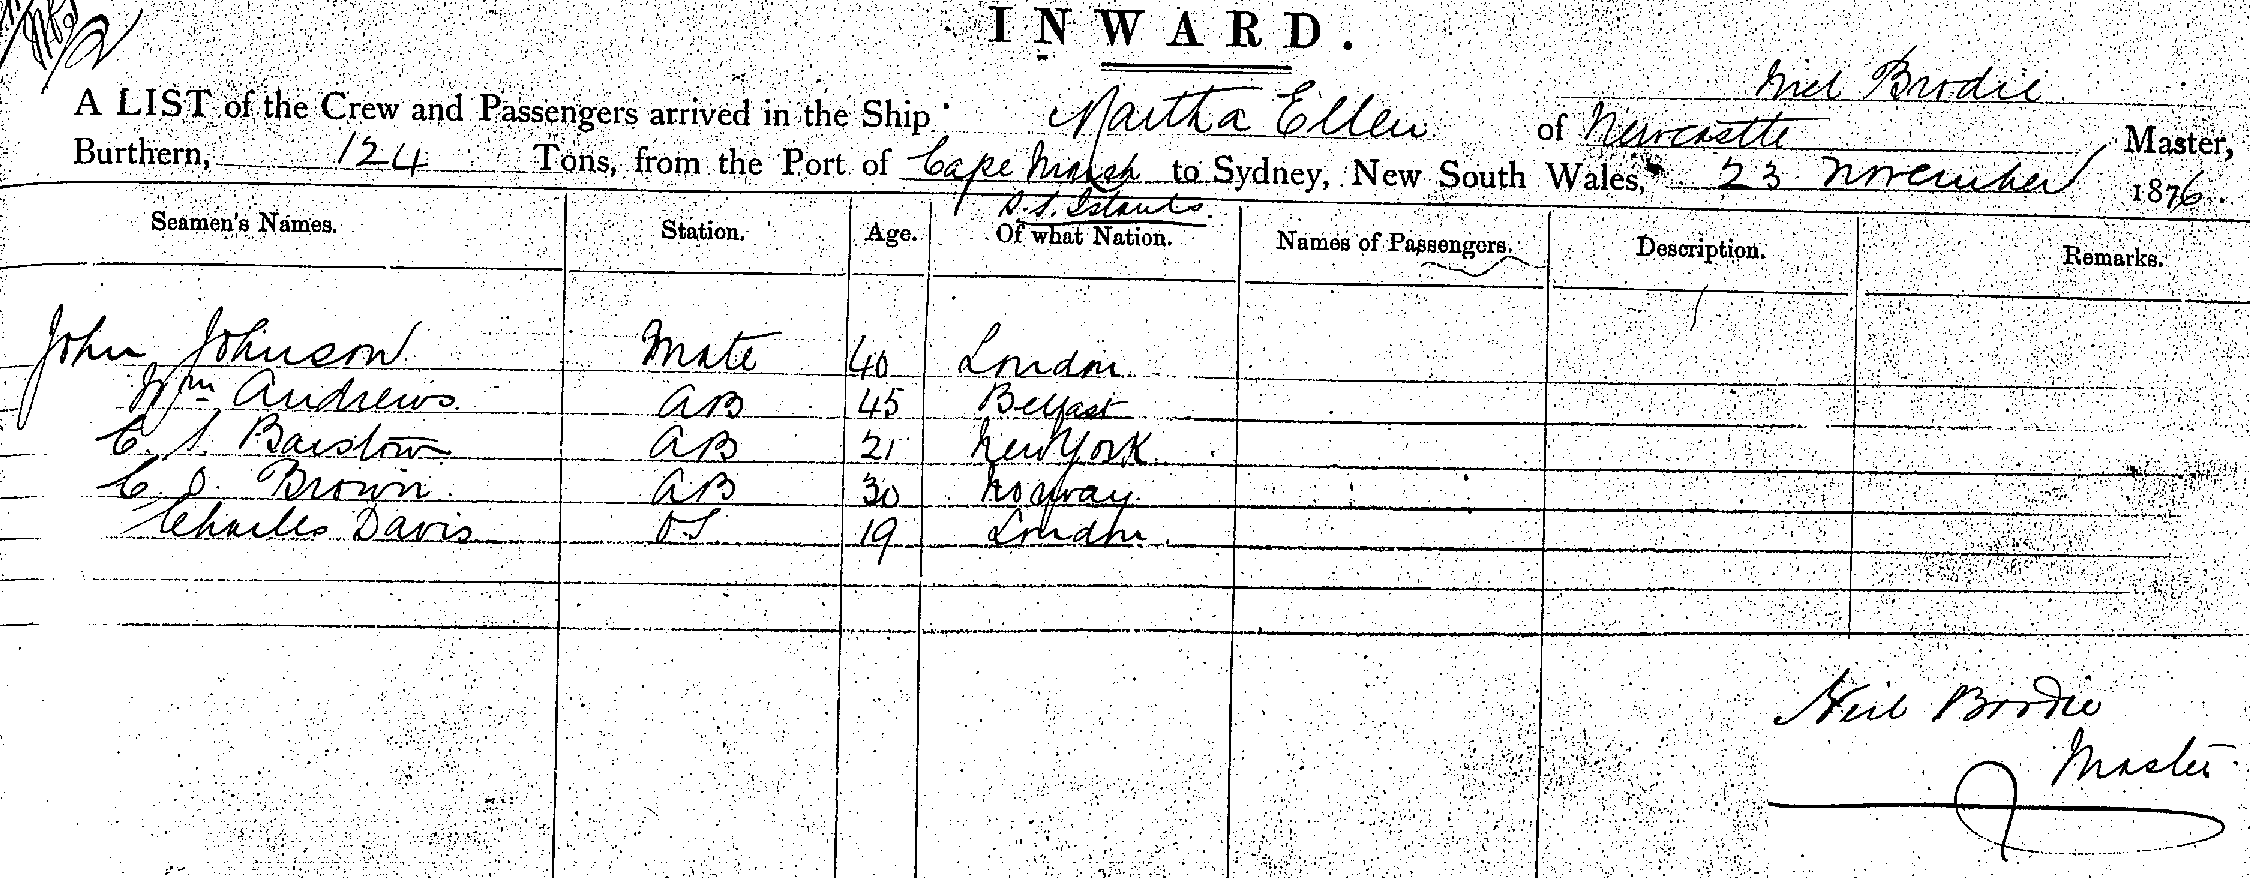 INWARD.
Niel Brodie
A LIST of the Crew and Passengers arrived in the Ship Martha Ellen of Newcastle Master,
Burthern, 124 Tons, from the Port of Cape Marsh to Sydney, New South Wales, 23 November 1876.
S. S. Islands.
Seamen's Names. Station. Age. Of what Nation. Names of Passengers. Description. Remarks.
John Johnson Mate 40 London
Wm Andrews AB 45 Belfast
C. S. Barstow AB 21 New York
C J. Brown AB 30 Norway
Charles Davis OS 19 London
Neil Brodie
Master